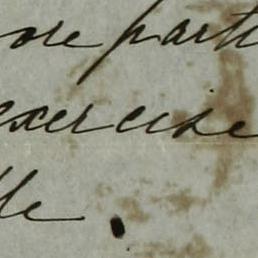 ore parti
exercise
lle.